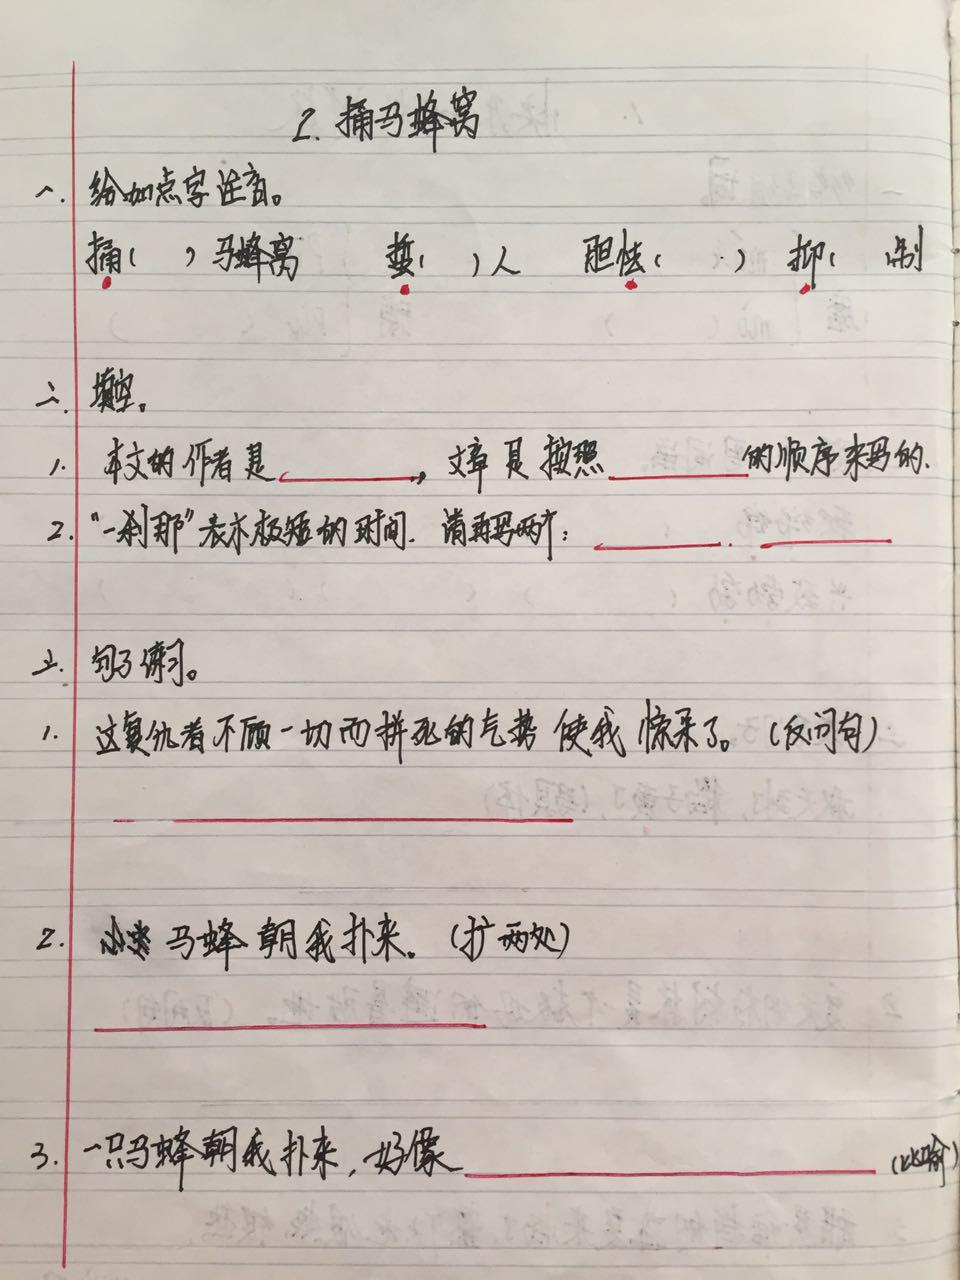 2. 捅马蜂窝
一. 给加点字注音。
捅( )马蜂窝 蜇( )人 胆怯( ) 抑( 制
二. 填空。
1. 本文的作者是________, 文章是按照________的顺序来写的.
2. "一刹那"表示极短的时间. 请再写两个: ________. ________
三. 句子练习。
1. 这复仇者不顾一切而拼死的气势使我惊呆了。(反问句)
2. 马蜂朝我扑来. (扩两处)
3. 一只马蜂朝我扑来, 好像________(比喻)